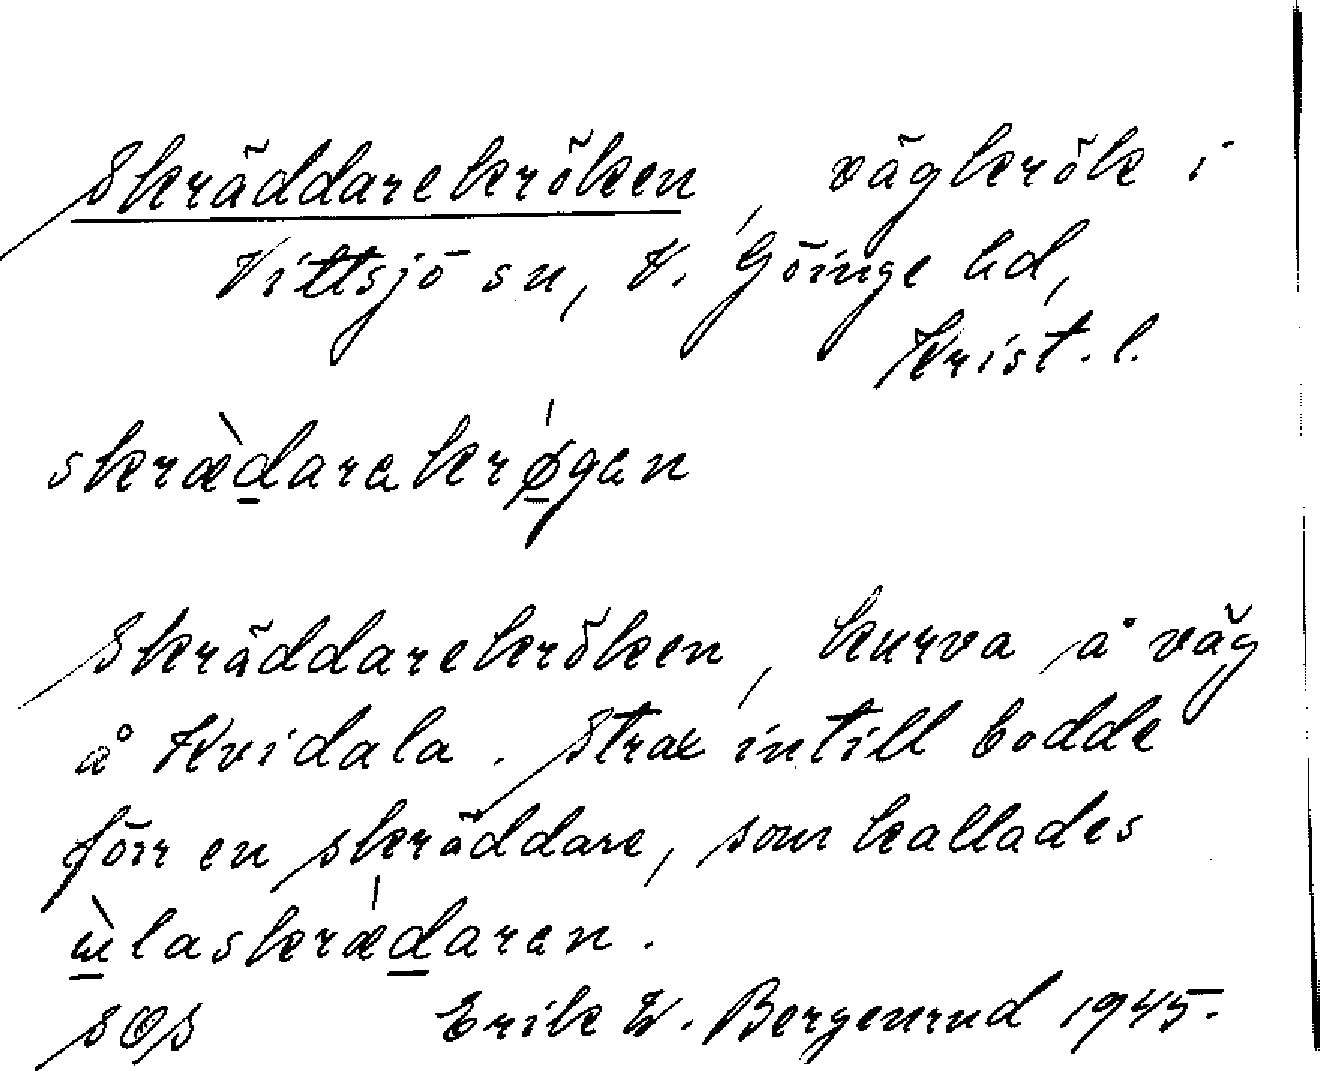 Skräddarekröken, vägkrök i
Vittsjö sn, V. Göinge hd,
Krist. l.
skræ̀darekrǿgen
Skräddarekröken, kurva å väg
å Kvidala. Strax intill bodde
förr en skräddare, som kallades
ɯ̀laskrǽdaren.
SOS Erik W. Bergenrud 1945.